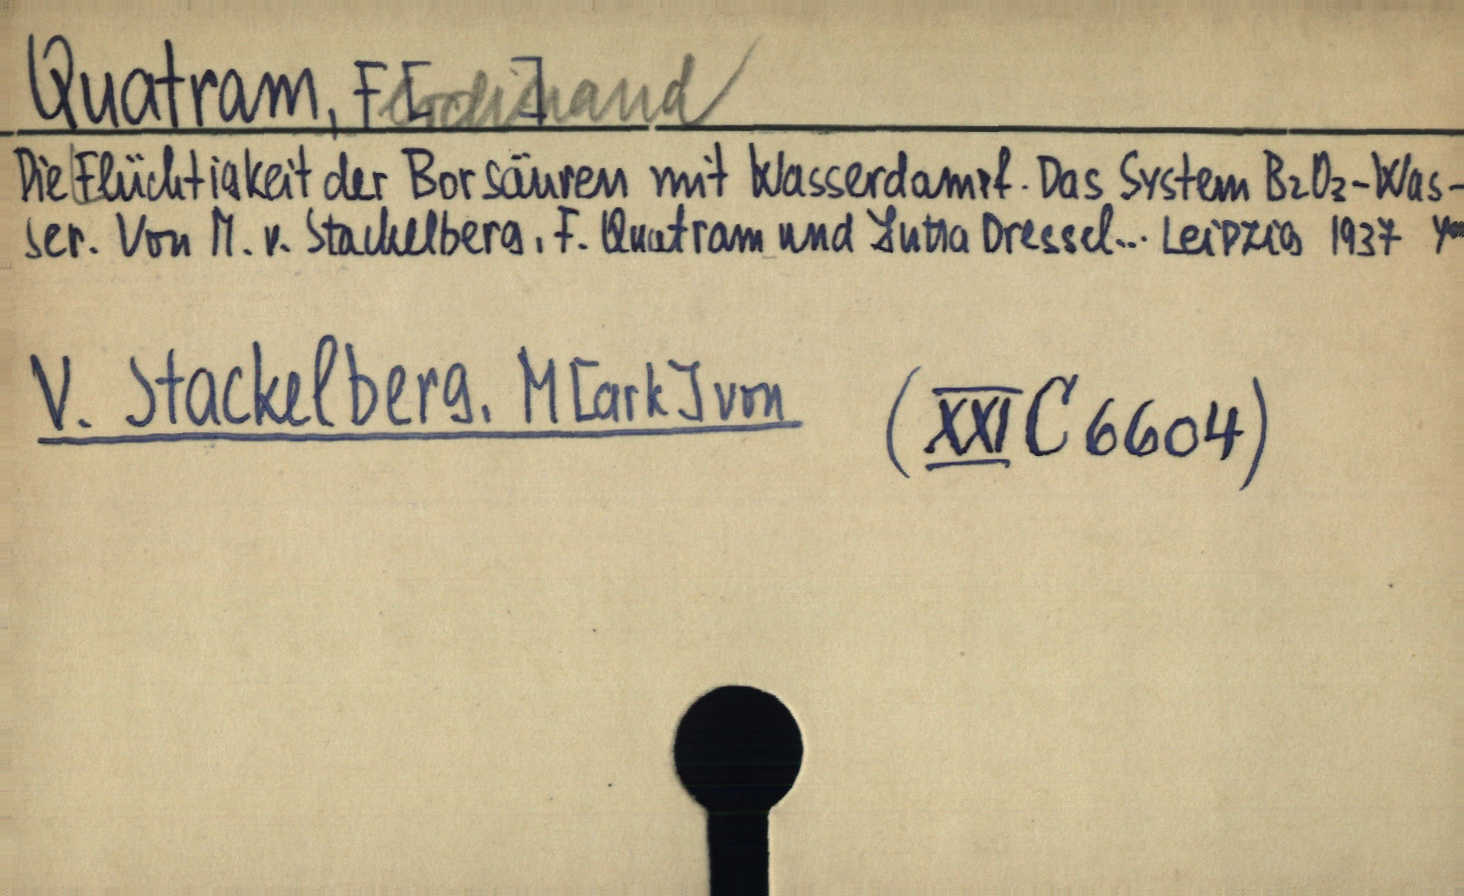 Quatram, F[erdinand]
Die Flüchtigkeit der Borsäuren mit Wasserdampf. Das System B2O3-Was-
ser. Von M. v. Stackelberg, F. Quatram und Jutta Dressel... Leipzig 1937
V. Stackelberg, M[ark] von
(XXI C 6604)